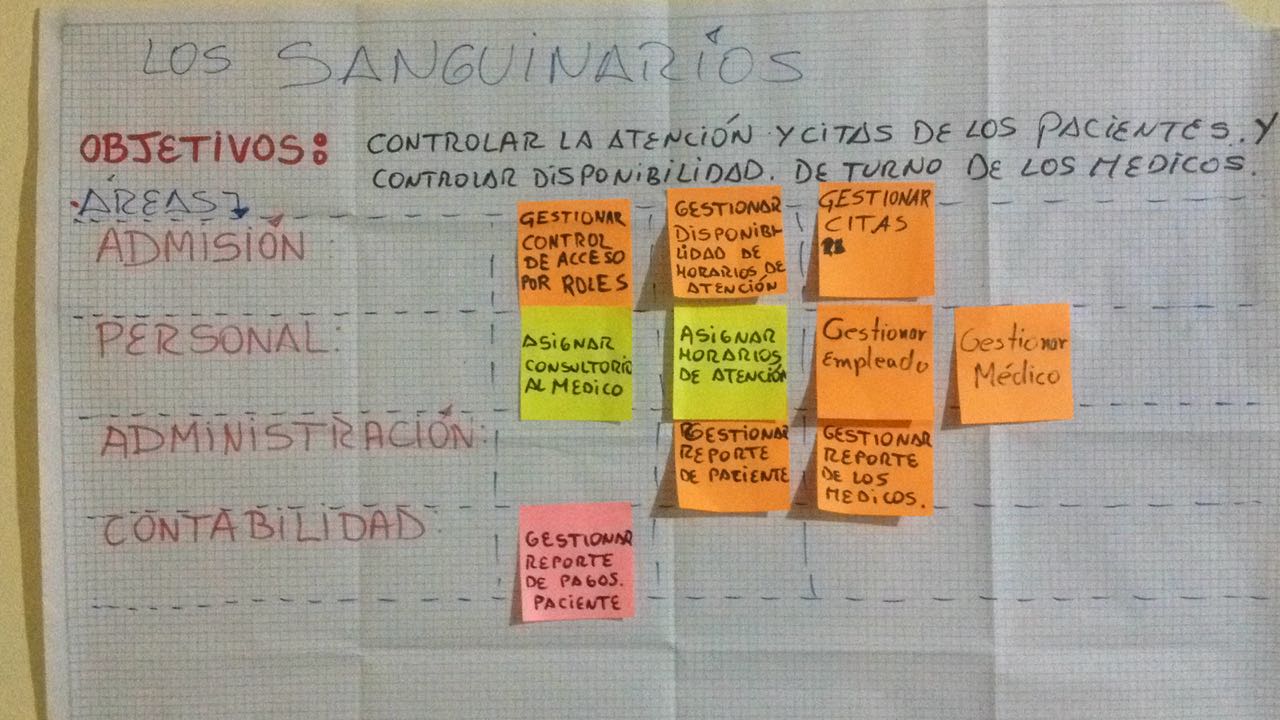 LOS SANGUINARÍOS
OBJETIVOS: CONTROLAR LA ATENCIÓN Y CITAS DE LOS PACIENTES. Y
CONTROLAR DISPONIBILIDAD. DE TURNO DE LOS MEDICOS.
ÁREAS
ADMISIÓN
GESTIONAR
CONTROL
DE ACCESO
POR ROLES
GESTIONAR
DISPONIBI-
LIDAD DE
HORARIOS DE
ATENCIÓN
GESTIONAR
CITAS
PERSONAL:
ASIGNAR
CONSULTORIO
AL MEDICO
ASIGNAR
HORARIOS
DE ATENCIÓN
Gestionar
Empleado
Gestionar
Médico
ADMINISTRACIÓN:
GESTIONAR
REPORTE
DE PACIENTE
GESTIONAR
REPORTE
DE LOS
MEDICOS.
CONTABILIDAD:
GESTIONAR
REPORTE
DE PAGOS.
PACIENTE